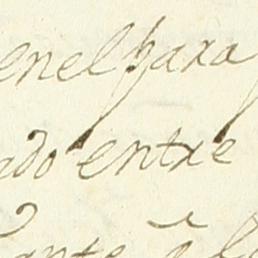 enel para
ado entre
ante